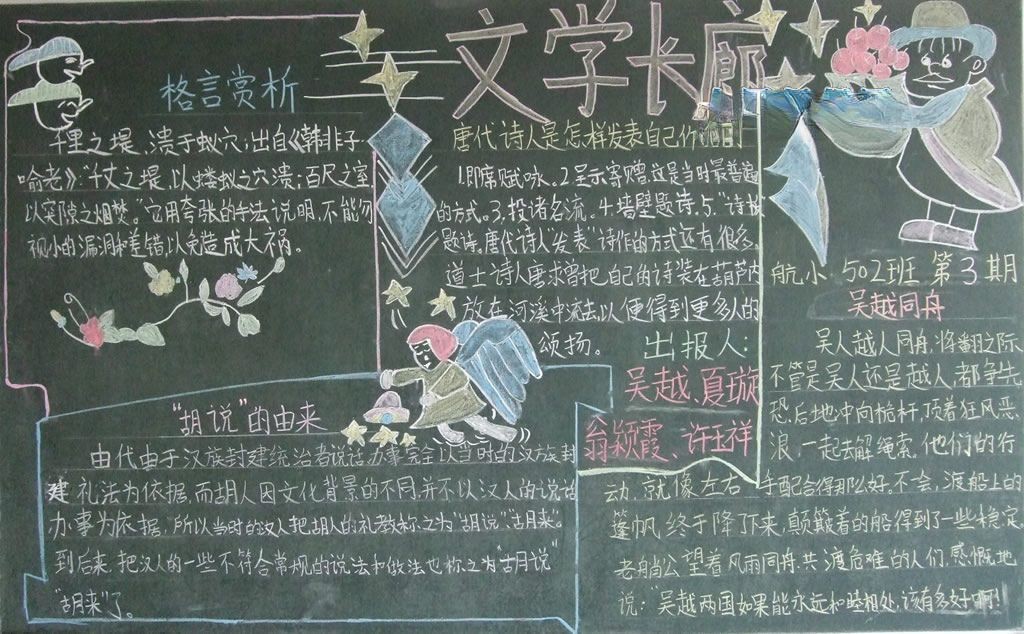 文学长廊
格言赏析
千里之堤,溃于蚁穴;出自《韩非子·
喻老》:“千丈之堤,以蝼蚁之穴溃;百尺之室
以突隙之烟焚。”它用夸张的手法说明,不能忽
视小的漏洞和差错,以免造成大祸。
唐代诗人是怎样发表自己作品的
1.即席赋咏。2.呈示寄赠这是当时最普遍
的方式。3.投诸名流。4.墙壁题诗。5.诗板
题诗。唐代诗人“发表”诗作的方式还有很多。
道士诗人唐求曾把自己的诗装在葫芦内
放在河溪中流去,以便得到更多人的
颂扬。
出报人:
吴越、夏璇
翁颖霞、许玉祥
“胡说”的由来
古代由于汉族封建统治者说话办事完全以当时的汉族封
建礼法为依据,而胡人因文化背景的不同,并不以汉人的说话
办事为依据,所以当时的汉人把胡人的礼教称之为“胡说”“胡来”。
到后来,把汉人的一些不符合常规的说法和做法也称之为“胡说”
“胡来”了。
航小 502班 第3期
吴越同舟
吴人越人同舟,将翻之际
不管是吴人还是越人,都争先
恐后地冲向桅杆,顶着狂风恶
浪,一起去解绳索。他们的行
动,就像左右手配合得那么好。不会,渡船上的
篷帆终于降下来,颠簸着的船得到了一些稳定。
老艄公望着风雨同舟、共渡危难的人们,感慨地
说:“吴越两国如果能永远和睦相处,该有多好啊!